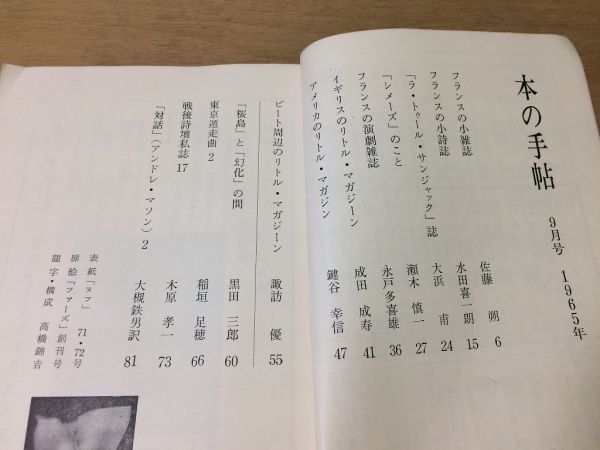 本の手帖 9月号 1965年
フランスの小雑誌 佐藤 朔 6
フランスの小詩誌 水田喜一朗 15
「ラ・トゥール・サンジャック」誌 大浜 甫 24
「シメーズ」のこと 瀬木 慎一 27
フランスの演劇雑誌 永戸多喜雄 36
イギリスのリトル・マガジーン 成田 成寿 41
アメリカのリトル・マガジン 鍵谷 幸信 47
ビート周辺のリトル・マガジーン 諏訪 優 55
「桜島」と「幻化」の間 黒田 三郎 60
東京遁走曲 2 稲垣 足穂 66
戦後詩壇私誌 17 木原 孝一 73
「対話」(アンドレ・マソン) 2 大槻鉄男訳 81
表紙「ヌフ」 71・72号
扉絵「ファーズ」創刊号
題字・構成 高橋錦吉